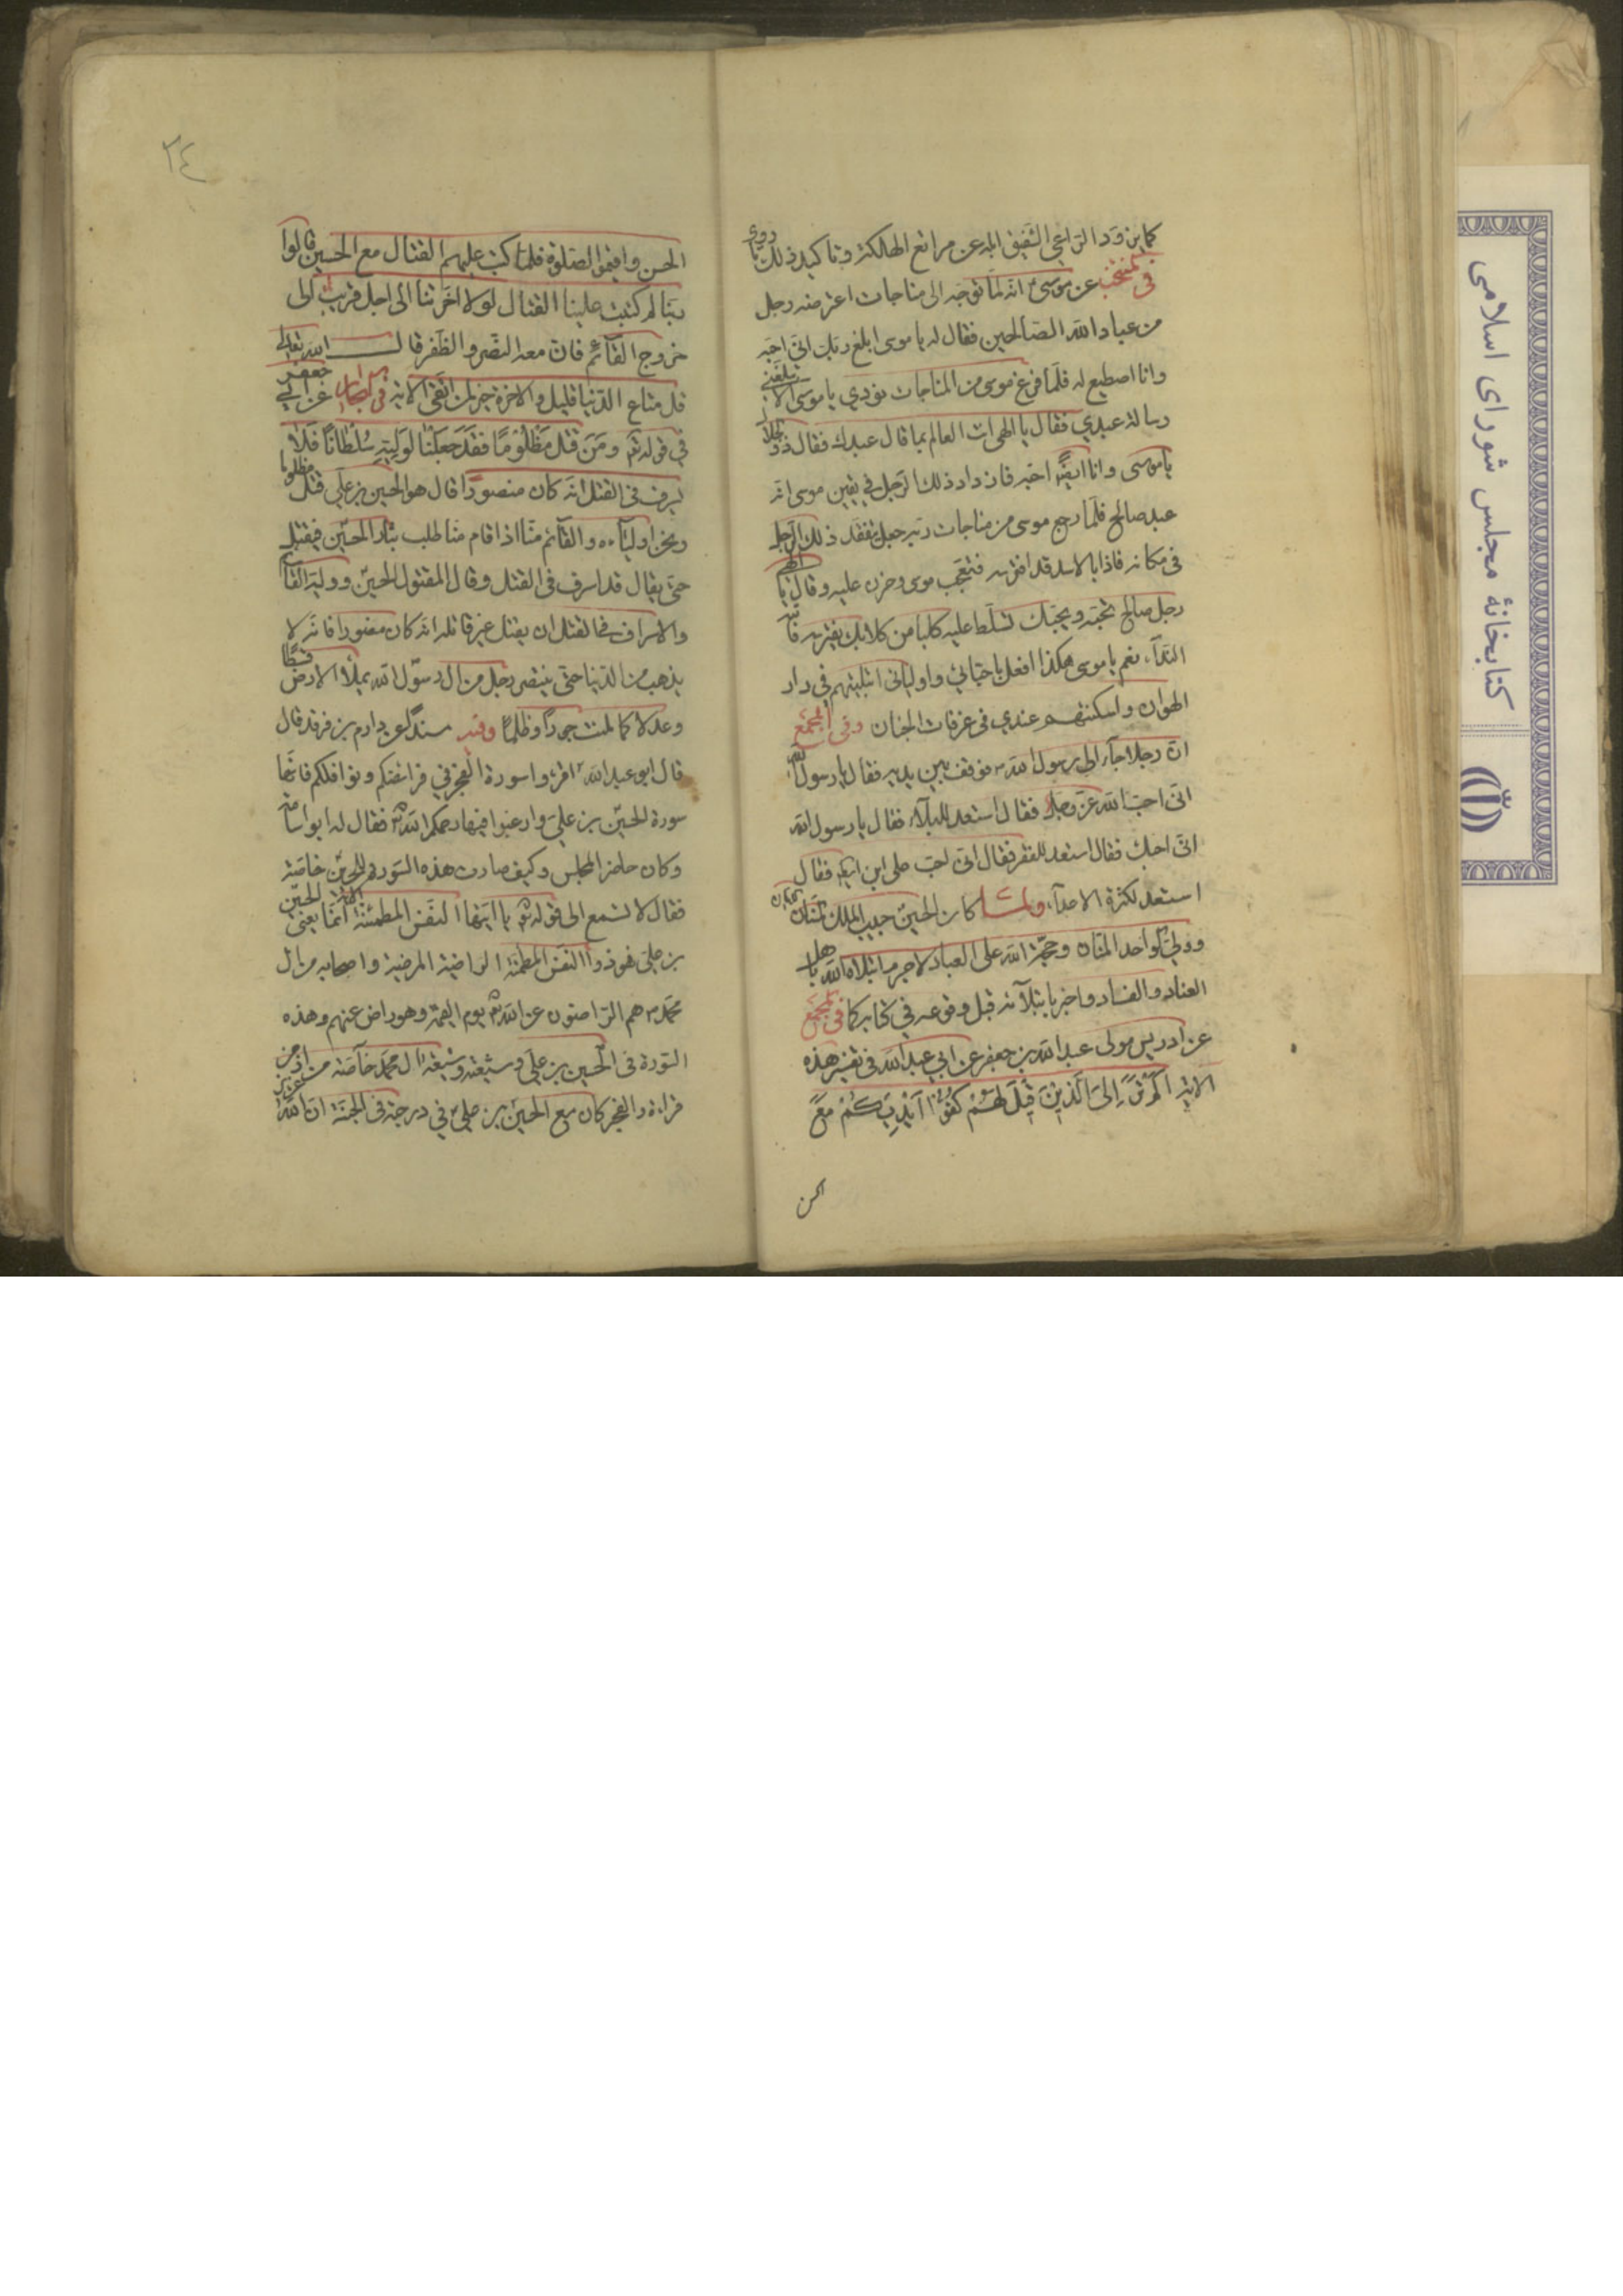 كما يزود الراعي الشفيق ابله عن مراتع الهلكة وتأكيد ذلك ما روى
في المنتخب عن موسى انه لما توجه الى مناجات اعترضه رجل
من عباد الله الصالحين فقال له يا موسى ابلغ ربك اني احبه
وانا اصطيع له فلما فرغ موسى من المناجات نودي يا موسى الا تبلغني
رسالة عبدي فقال يا الهي انت العالم بما قال عبدك فقال
يا موسى وانا ايضا احبه فازداد ذلك الرجل في يقين موسى انه
عبد صالح فلما رجع موسى من مناجات ربه جعل يتفقد ذلك الرجل
في مكانه فاذا بالاسد قد افترسه فتعجب موسى وحزن عليه وقال يا الهي
رجل صالح تحبه ويحبك تسلط عليه كلبا من كلابك يفترسه
النداء نعم يا موسى هكذا افعل باحبائي واوليائي ابتليتهم في دار
الهوان واسكنتهم عندي في غرفات الجنان وفي المجمع
ان رجلا جاء الى رسول الله ص فوقف بين يديه فقال يا رسول الله
اني احب الله عز وجل فقال استعد للبلاء فقال يا رسول الله
اني احبك فقال استعد للفقر فقال اني احب علي ابن ابيطالب فقال
استعد لكثرة الاعداء ولما كان الحسين حبيب الملك
وولي الواحد المنان وحجة الله على العباد لا جرم ابتلاه الله باهل
العناد والفساد واخبر بابتلائه قبل وقوعه في كتابه كما في المجمع
عن ادريس مولى عبد الله بن جعفر عن ابي عبد الله في تفسير هذه
الاية الم تر الى الذين قيل لهم كفوا ايديكم مع
الحسن
٢٤
الحسن واقيموا الصلوة فلما كتب عليهم القتال مع الحسين قالوا
ربنا لم كتبت علينا القتال لولا اخرتنا الى اجل قريب الى
خروج القائم فان معه النصر والظفر قال الله تعالى
قل متاع الدنيا قليل والاخرة خير لمن اتقى الاية في البحار عن ابي جعفر
في قوله تع ومن قتل مظلوما فقد جعلنا لوليه سلطانا فلا
يسرف في القتل انه كان منصورا قال هو الحسين بن علي قتل مظلوما
ونحن اولياءه والقائم منا اذا قام منا طلب بثار الحسين فيقتل
حتى يقال قد اسرف في القتل وقال المقتول الحسين ووليه القائم
والاسراف في القتل ان يقتل غير قاتله انه كان منصورا فانه لا
يذهب من الدنيا حتى ينتصر رجل من ال رسول الله يملأ الارض قسطا
وعدلا كما ملئت جورا وظلما وفيه مسندا عن دارم بن فرقد قال
قال ابو عبد الله ع اقرؤا سورة الفجر في فرائضكم ونوافلكم فانها
سورة الحسين بن علي وارغبوا فيها رحمكم الله تع فقال له ابو اسامة
وكان حاضر المجلس وكيف صارت هذه السورة للحسين خاصة
فقال الا تسمع الى قوله تع يا ايتها النفس المطمئنة انما يعني الحسين
بن علي فهو ذو النفس المطمئنة الراضية المرضية واصحابه من ال
محمد ص هم الراضون عن الله تع يوم القيمة وهو راض عنهم وهذه
السورة في الحسين بن علي وشيعته وشيعة ال محمد خاصة
قراءة والفجر كان مع الحسين بن علي في درجته في الجنة ان الله
كتابخانهٔ مجلس شورای اسلامی